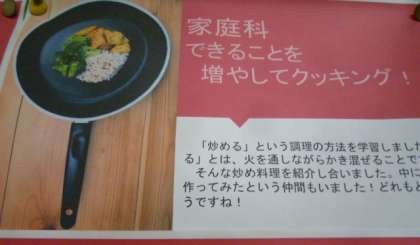 家庭科
できることを
増やしてクッキング！
「炒める」という調理の方法を学習しました
る」とは、火を通しながらかき混ぜることで
そんな炒め料理を紹介し合いました。中に
作ってみたという仲間もいました！どれも
うですね！